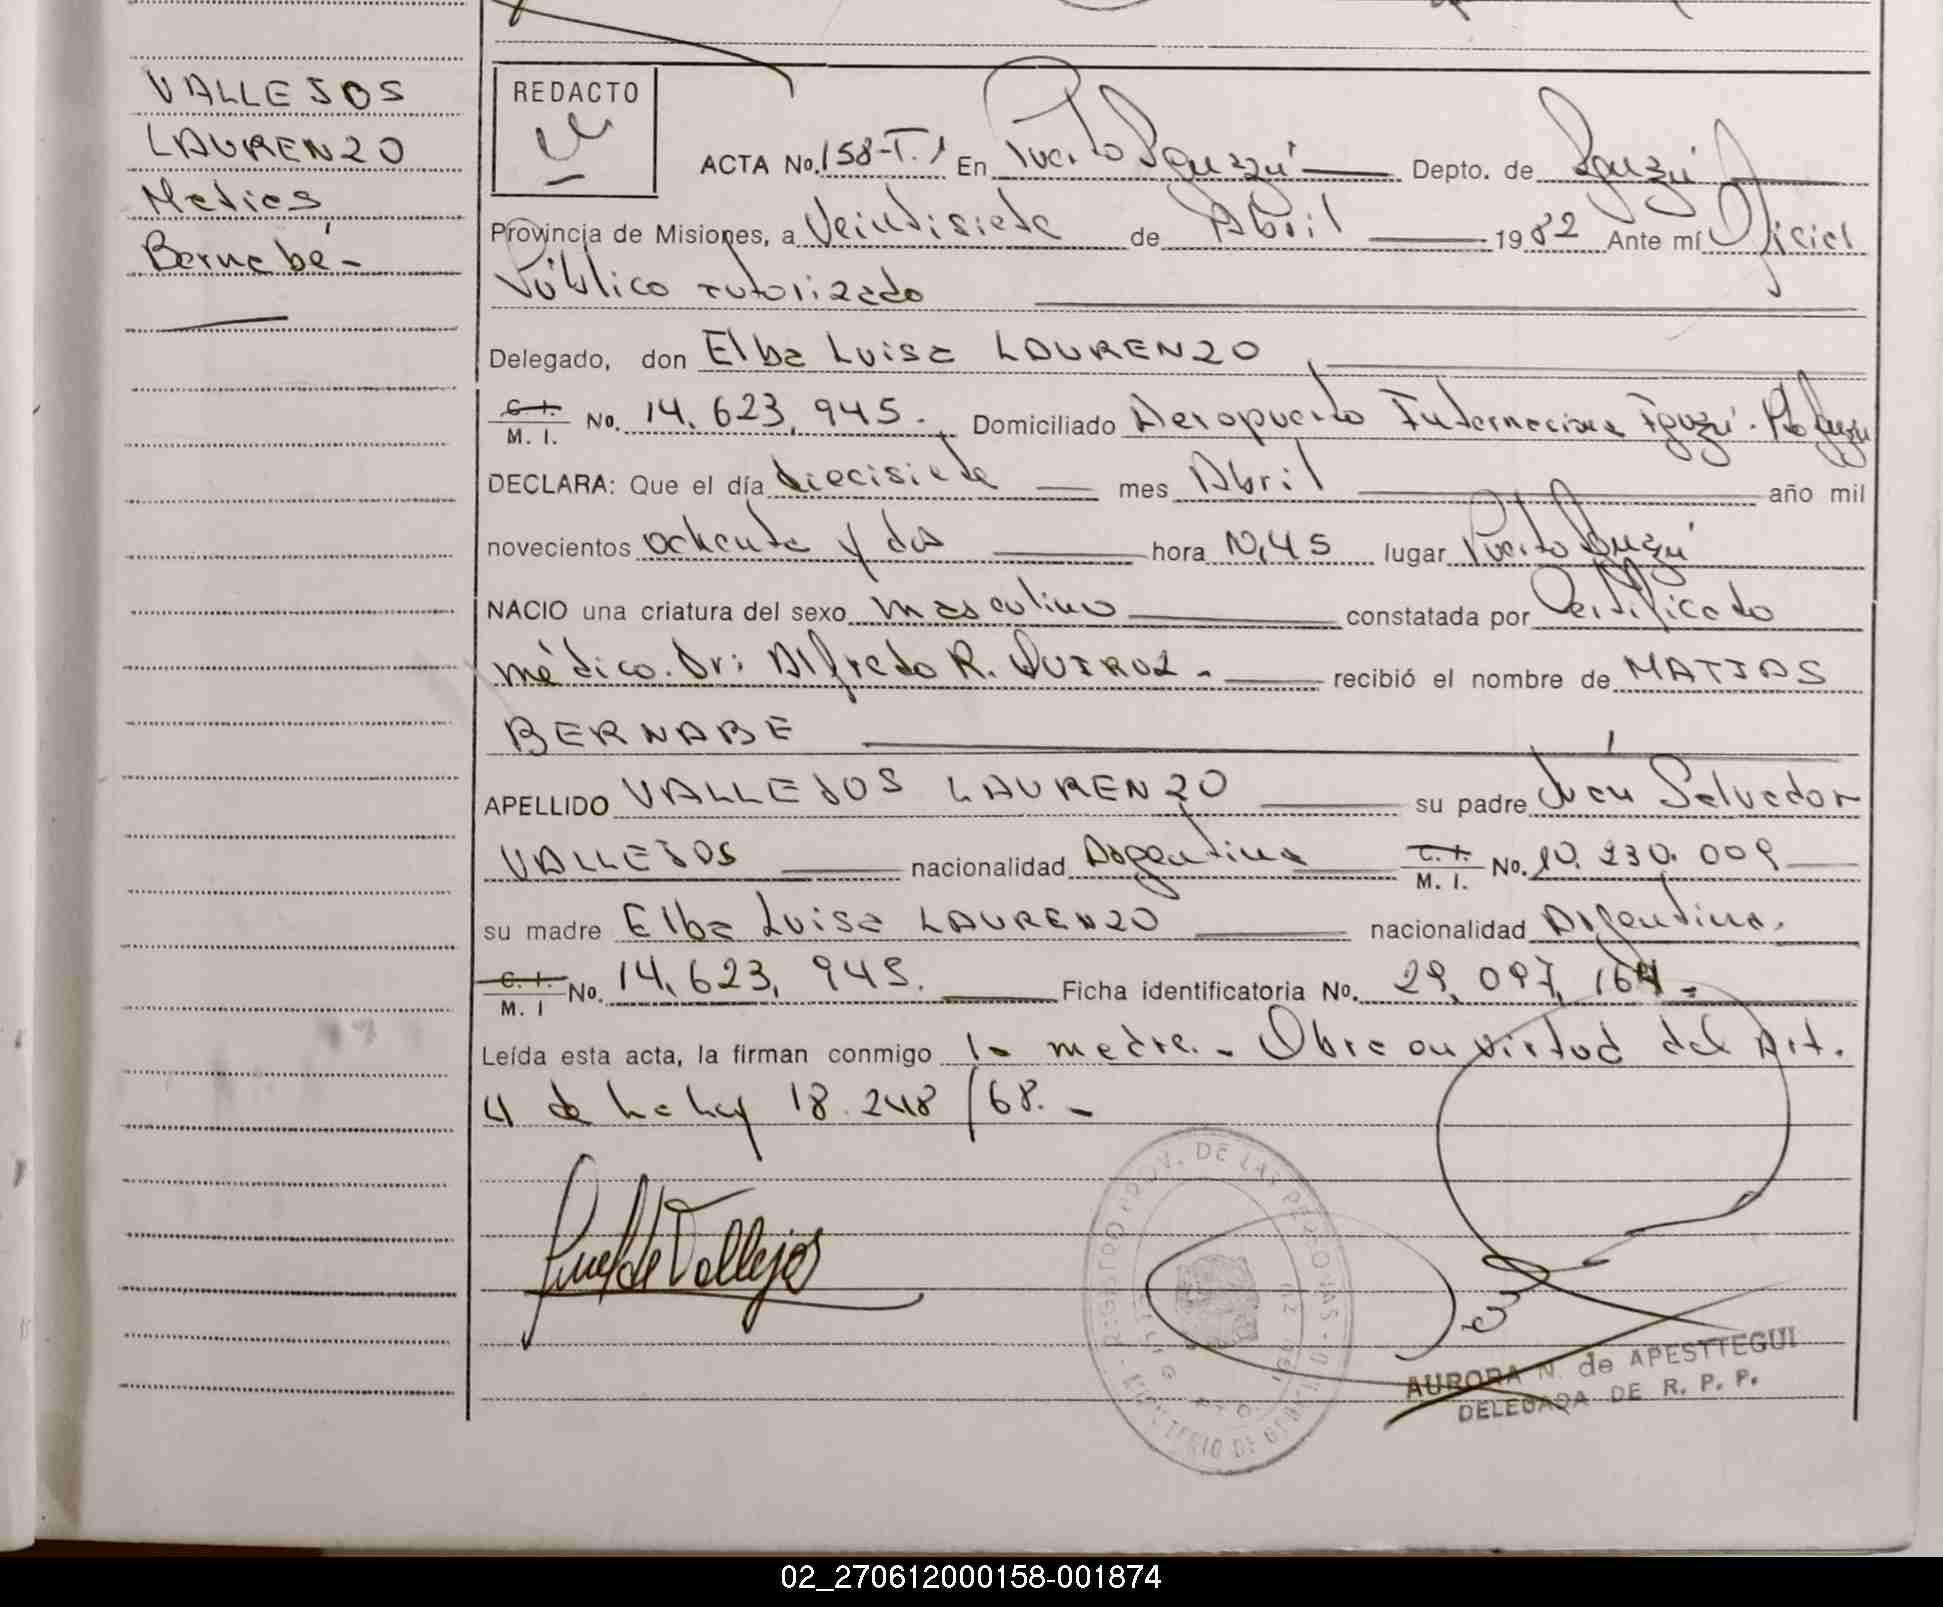 VALLEJOS
LAURENZO
Matias
Bernabé-
REDACTO
ACTA No. 158-T.1 En Puerto Iguazú Depto. de Iguazú
Provincia de Misiones, a Veintisiete de Abril 1982 Ante mí Oficial
Público autorizado
Delegado, don Elba Luisa LAURENZO
C. I. / M. I. No. 14.623.945. Domiciliado Aeropuerto Internacional Iguazú. Pto Iguazú
DECLARA: Que el día diecisiete mes Abril año mil
novecientos ochenta y dos hora 10,45 lugar Puerto Iguazú
NACIO una criatura del sexo masculino constatada por Certificado
médico. Dr: Alfredo R. QUIROZ.- recibió el nombre de MATIAS
BERNABE
APELLIDO VALLEJOS LAURENZO su padre Juan Salvador
VALLEJOS nacionalidad Argentina C. I. / M. I. No. 10.230.009
su madre Elba Luisa LAURENZO nacionalidad Argentina.
C. I. / M. I No. 14.623.945. Ficha identificatoria No. 29.097.164.-
Leída esta acta, la firman conmigo la madre.- Obra en virtud del Art.
4 de la Ley 18.248/68.-
de Vallejos
REGISTRO PROV. DE LAS PERSONAS
MINISTERIO DE GOBIERNO
AURORA N. de APESTTEGUI
DELEGADA DE R. P. P.
02_270612000158-001874